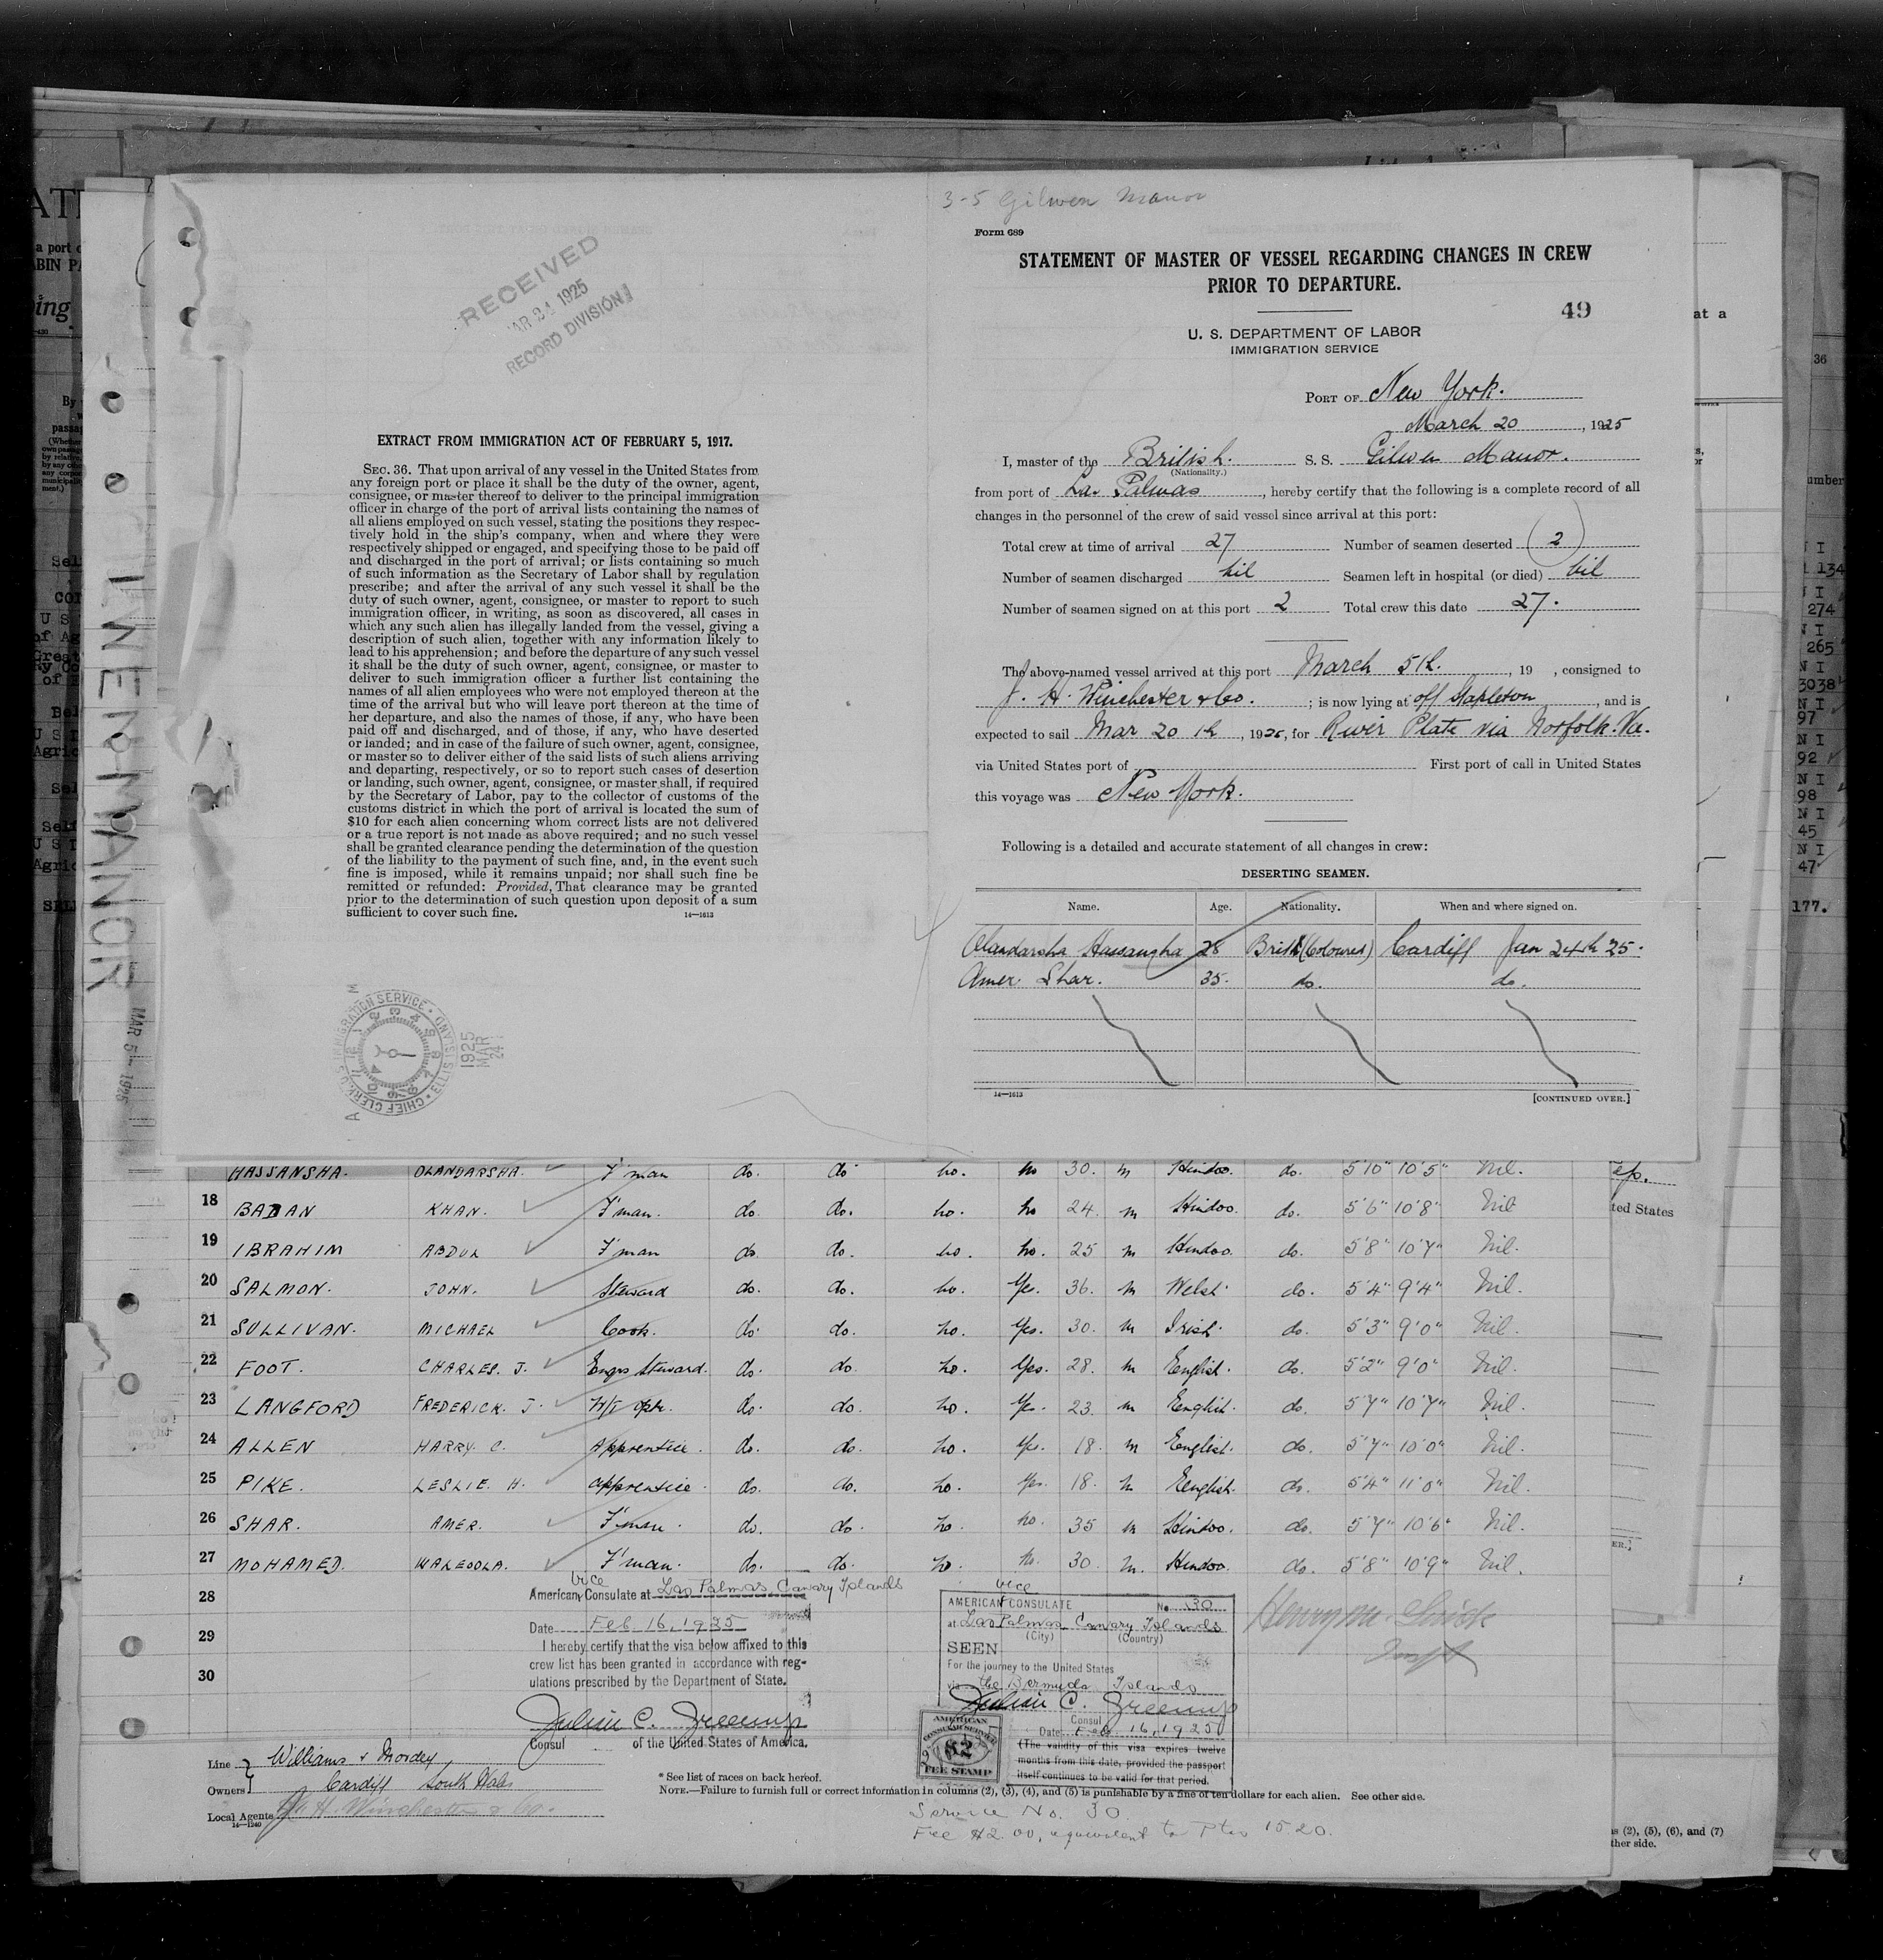 3-5 Gilwen Manor
Form 689
STATEMENT OF MASTER OF VESSEL REGARDING CHANGES IN CREW
PRIOR TO DEPARTURE.
49
U. S. DEPARTMENT OF LABOR
IMMIGRATION SERVICE
PORT OF New York.
March 20, 1925
I, master of the British. S. S. Gilwen Manor.
(Nationality.)
from port of Las Palmas, hereby certify that the following is a complete record of all
changes in the personnel of the crew of said vessel since arrival at this port:
Total crew at time of arrival 27 Number of seamen deserted (2)
Number of seamen discharged Nil Seamen left in hospital (or died) Nil
Number of seamen signed on at this port 2 Total crew this date 27.
The above-named vessel arrived at this port March 5th., 19 , consigned to
J. H. Winchester & Co. ; is now lying at off Stapleton, and is
expected to sail Mar 20th, 1925, for River Plate via Norfolk. Va.
via United States port of First port of call in United States
this voyage was New York.
Following is a detailed and accurate statement of all changes in crew:
DESERTING SEAMEN.
Name. Age. Nationality. When and where signed on.
Olandarsha Hassansha 28 Brit (Coloured) Cardiff Jan 24th 25.
Amer Shar. 35. do. do.
14—1613
[CONTINUED OVER.]
RECEIVED
MAR 24 1925
RECORD DIVISION
EXTRACT FROM IMMIGRATION ACT OF FEBRUARY 5, 1917.
SEC. 36. That upon arrival of any vessel in the United States from
any foreign port or place it shall be the duty of the owner, agent,
consignee, or master thereof to deliver to the principal immigration
officer in charge of the port of arrival lists containing the names of
all aliens employed on such vessel, stating the positions they respec-
tively hold in the ship's company, when and where they were
respectively shipped or engaged, and specifying those to be paid off
and discharged in the port of arrival; or lists containing so much
of such information as the Secretary of Labor shall by regulation
prescribe; and after the arrival of any such vessel it shall be the
duty of such owner, agent, consignee, or master to report to such
immigration officer, in writing, as soon as discovered, all cases in
which any such alien has illegally landed from the vessel, giving a
description of such alien, together with any information likely to
lead to his apprehension; and before the departure of any such vessel
it shall be the duty of such owner, agent, consignee, or master to
deliver to such immigration officer a further list containing the
names of all alien employees who were not employed thereon at the
time of the arrival but who will leave port thereon at the time of
her departure, and also the names of those, if any, who have been
paid off and discharged, and of those, if any, who have deserted
or landed; and in case of the failure of such owner, agent, consignee,
or master so to deliver either of the said lists of such aliens arriving
and departing, respectively, or so to report such cases of desertion
or landing, such owner, agent, consignee, or master shall, if required
by the Secretary of Labor, pay to the collector of customs of the
customs district in which the port of arrival is located the sum of
$10 for each alien concerning whom correct lists are not delivered
or a true report is not made as above required; and no such vessel
shall be granted clearance pending the determination of the question
of the liability to the payment of such fine, and, in the event such
fine is imposed, while it remains unpaid; nor shall such fine be
remitted or refunded: Provided, That clearance may be granted
prior to the determination of such question upon deposit of a sum
sufficient to cover such fine.
14—1613
IMMIGRATION SERVICE
ELLIS ISLAND
CHIEF CLERK'S
1925
MAR
24
MANOR
MAR 5- 1925
HASSANSHA. OLANDARSHA. F'man do. do. no. no 30. m Hindoo. do. 5'10" 10'5" Nil.
18 BADAN KHAN. F'man. do. do. no. no 24. m Hindoo. do. 5'6" 10'8" Nil
19 IBRAHIM ABDUL F'man do. do. no. no. 25 m Hindoo. do. 5'8" 10'7" Nil.
20 SALMON. JOHN. Steward do. do. no. Yes. 36. m Welsh. do. 5'4" 9'4" Nil.
21 SULLIVAN. MICHAEL Cook. do. do. no. Yes. 30. m Irish. do. 5'3" 9'0" Nil.
22 FOOT. CHARLES. J. Engrs Steward. do. do. no. Yes. 28. m English. do. 5'2" 9'0" Nil.
23 LANGFORD FREDERICK. J. W/T Optr. do. do. no. Yes. 23. m English. do. 5'7" 10'7" Nil.
24 ALLEN HARRY. C. Apprentice. do. do. no. Yes. 18. m English. do. 5'7" 10'0" Nil.
25 PIKE. LESLIE. H. apprentice. do. do. no. Yes. 18. m English. do. 5'4" 11'0" Nil.
26 SHAR. AMER. F'man. do. do. no. no. 35 m Hindoo. do. 5'7" 10'6" Nil.
27 MOHAMED. WALEDOLA. F'man. do. do. no. no. 30. m. Hindoo. do. 5'8" 10'9" Nil.
28
29
30
American Vice Consulate at Las Palmas, Canary Islands
Date Feb 16, 1925
I hereby certify that the visa below affixed to this
crew list has been granted in accordance with reg-
ulations prescribed by the Department of State.
Julian C. Greenup
Consul of the United States of America.
AMERICAN vice CONSULATE No. 30
at Las Palmas Canary Islands
(City) (Country)
SEEN
For the journey to the United States
via the Bermuda Islands
Julian C. Greenup
Consul
Date Feb. 16, 1925
(The validity of this visa expires twelve
months from this date, provided the passport
itself continues to be valid for that period.
AMERICAN
CONSULAR SERVICE
$2
FEE STAMP
Line Williams & Mordey
Owners Cardiff South Wales
Local Agents J. H. Winchester & Co.
14—1240
* See list of races on back hereof.
NOTE.—Failure to furnish full or correct information in columns (2), (3), (4), and (5) is punishable by a fine of ten dollars for each alien. See other side.
Service No. 30
Fee $2.00, equivalent to Ptas 15.20.
ted States
s (2), (5), (6), and (7)
ther side.
at a
36
177.